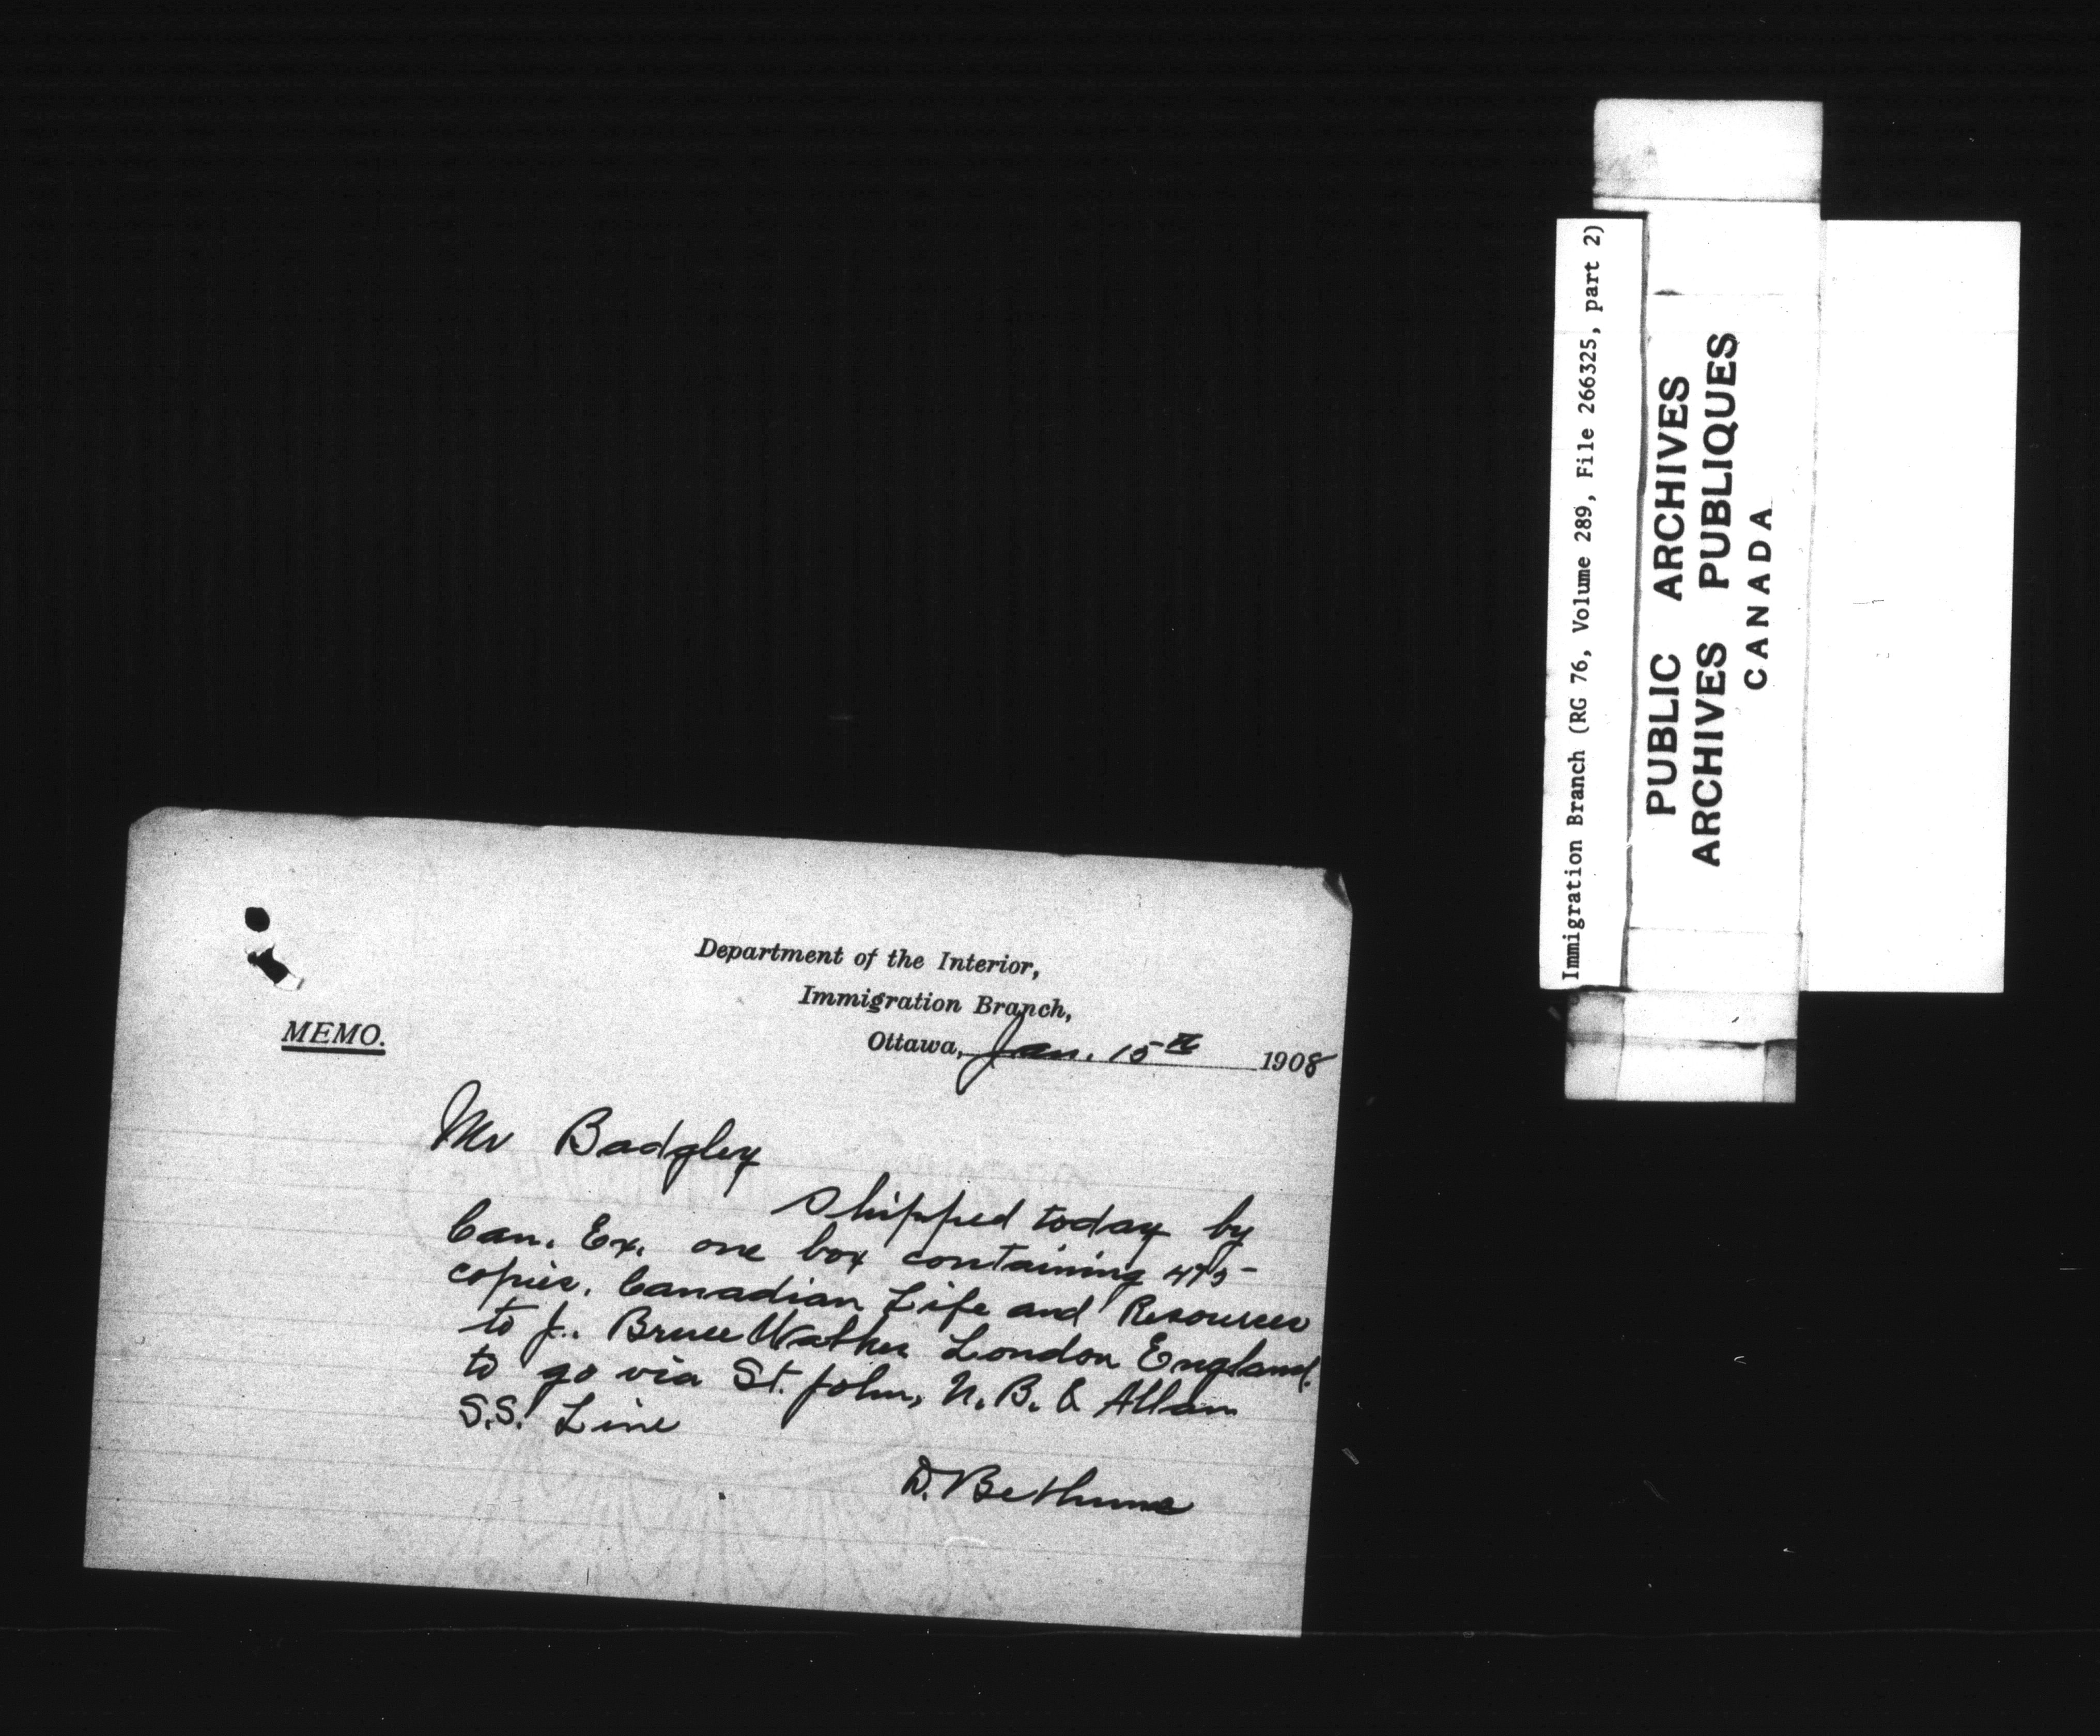 Department of the Interior,
Immigration Branch,
MEMO.
Ottawa, Jan. 15th 1908
Mr Badgley
Shipped today by
Can. Ex. one box containing 475
copies. Canadian Life and Resources
to J. Bruce Walker London England.
to go via St. John, N. B. & Allan
S.S. Line
D. Bethune
Immigration Branch (RG 76, Volume 289, File 266325, part 2)
PUBLIC ARCHIVES
ARCHIVES PUBLIQUES
CANADA